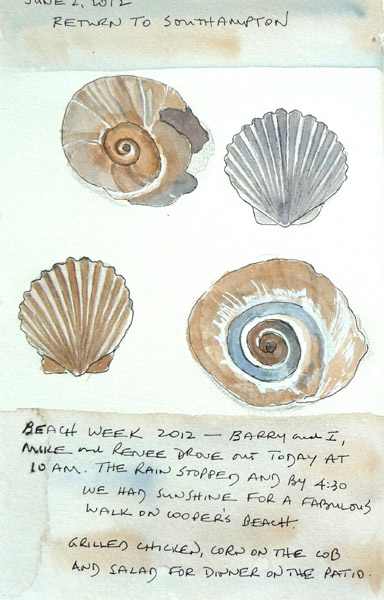 JUNE 2, 2012
RETURN TO SOUTHAMPTON
BEACH WEEK 2012 — BARRY and I,
MIKE and RENEE DROVE out TODAY AT
10 AM. THE RAIN STOPPED AND BY 4:30
WE HAD SUNSHINE FOR A FABULOUS
WALK ON COOPER'S BEACH.
GRILLED CHICKEN, CORN ON THE COB
AND SALAD FOR DINNER ON THE PATIO.